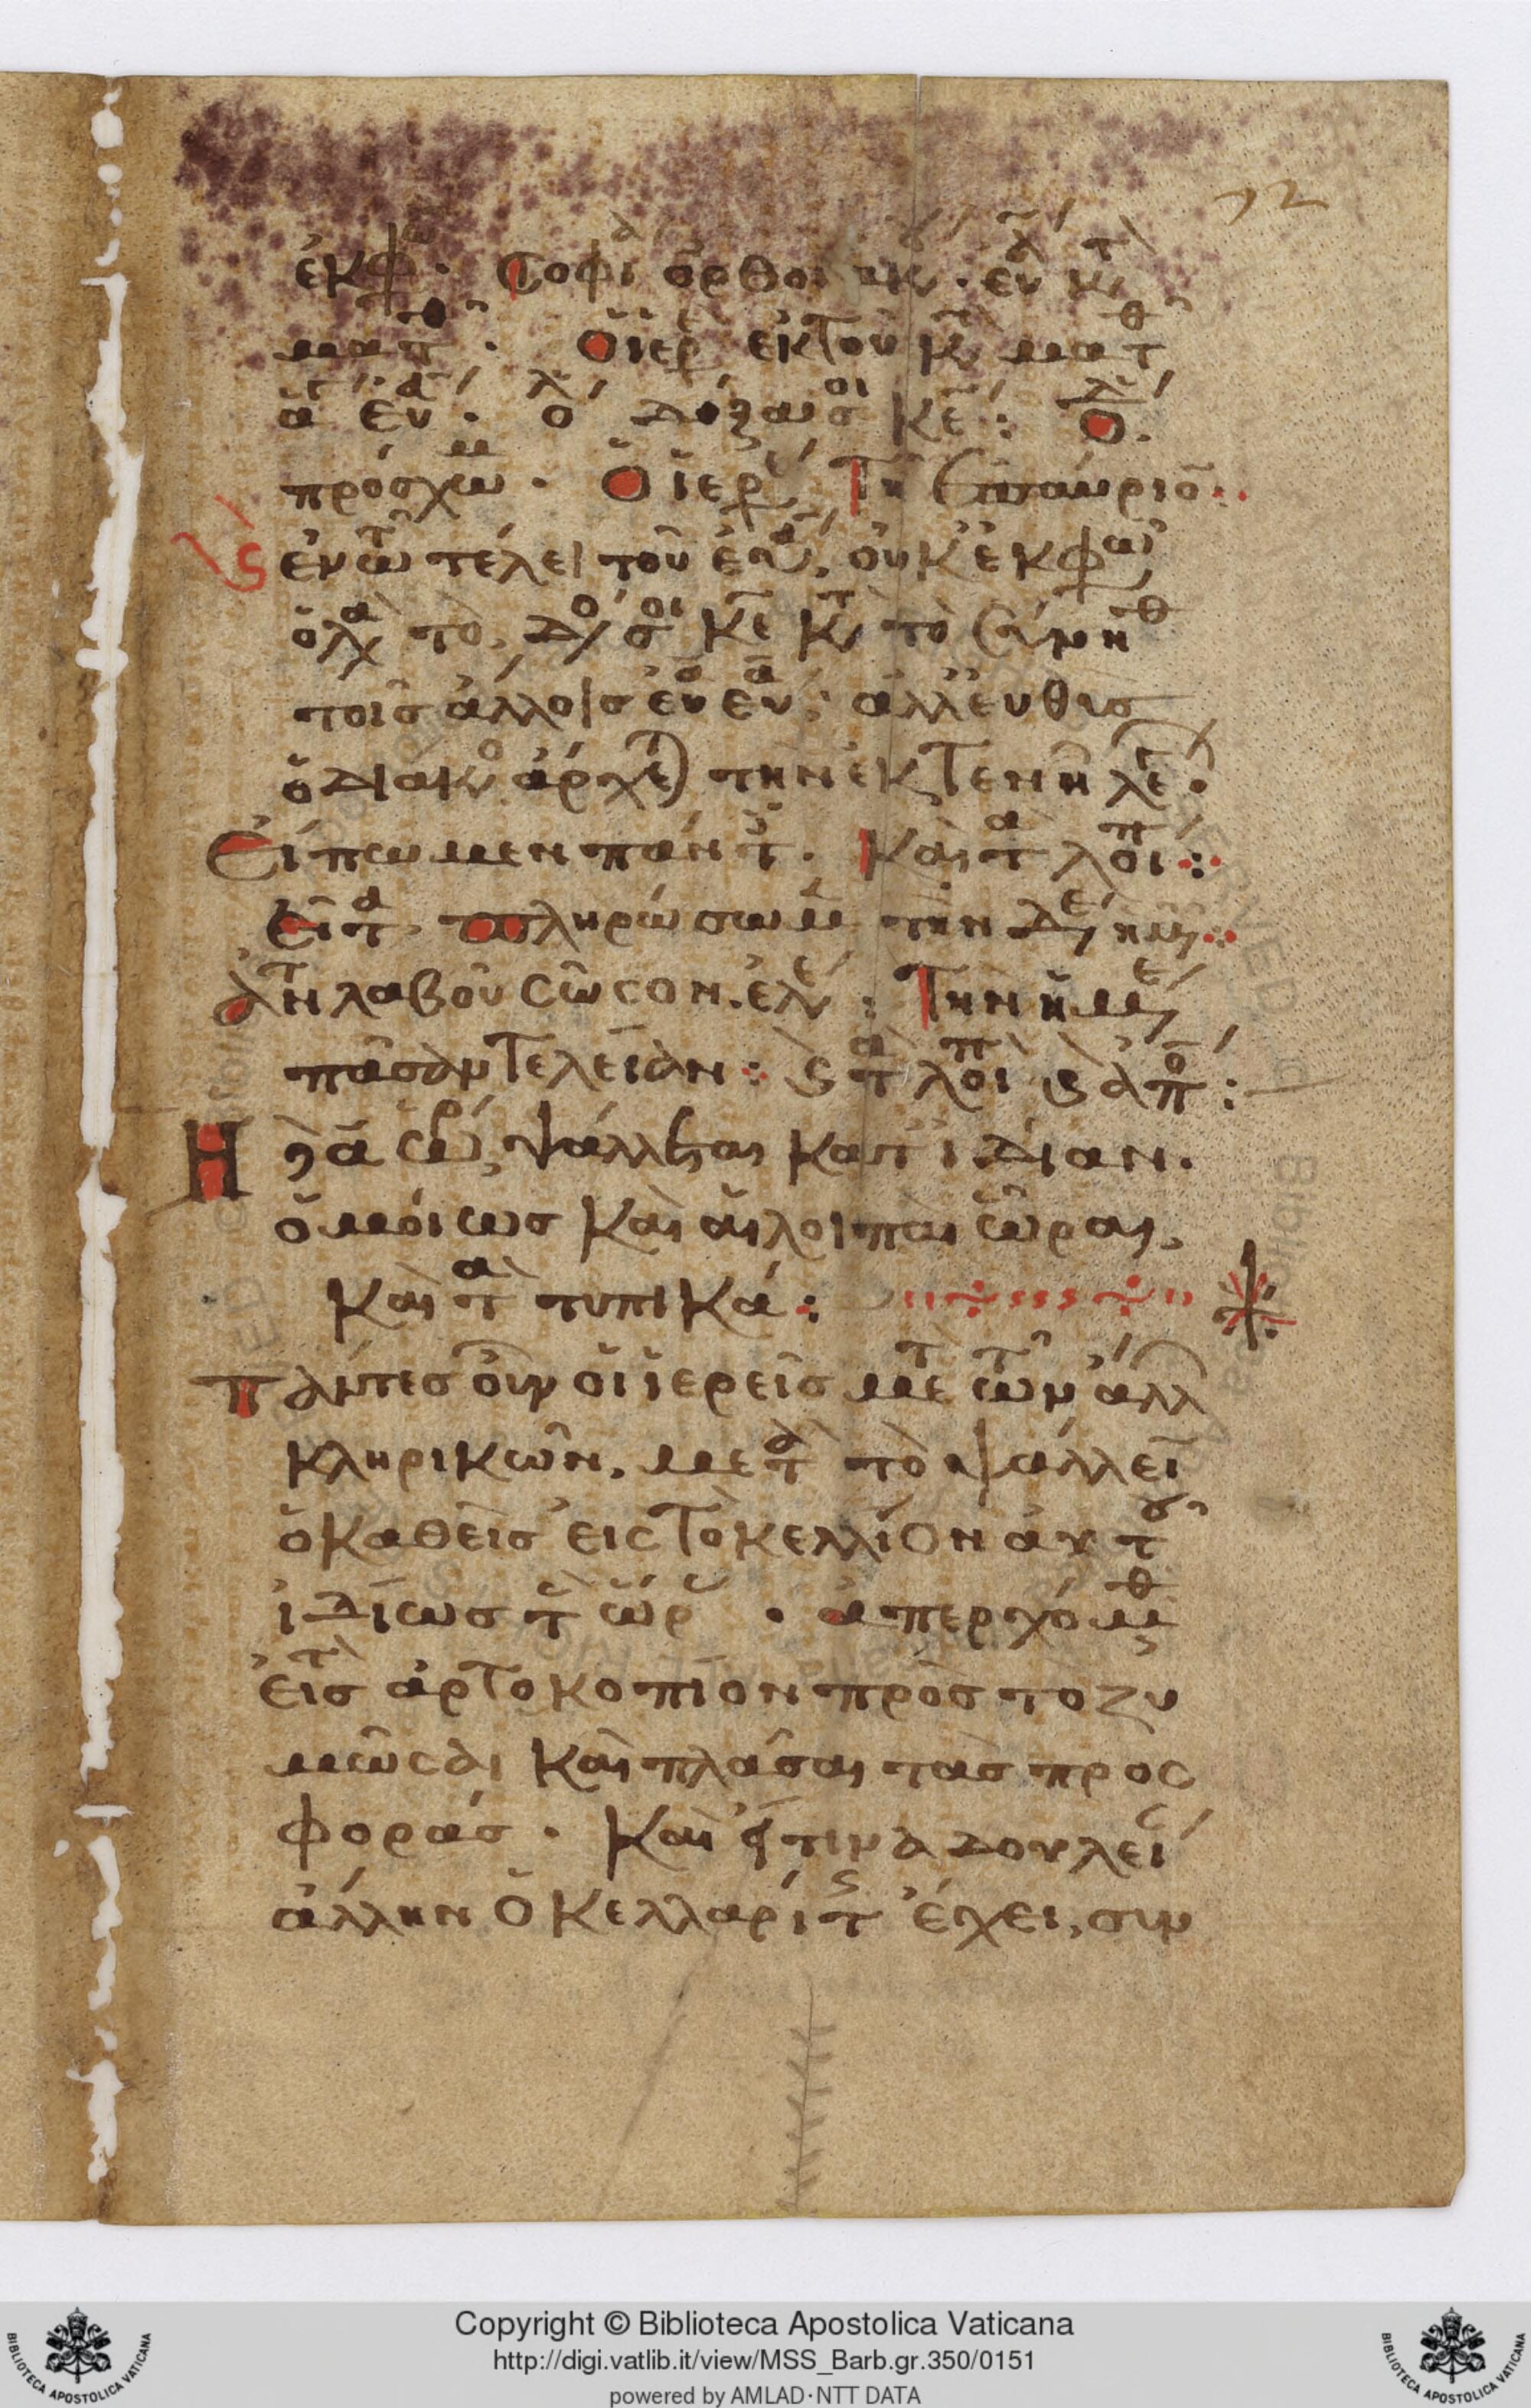 72
ἐκφ · Σοφι ὀρθοι ακ · εὐ κτ
ματθ · Ὁ ἱερ ἐκ τοῦ κτ ματθ
ἁ εὐ · ὁ λ δόξα σοι κε : Ὁ δ
πρόσχωμ · Ὁ ἱερ Τη ἐπαύριο
ἐν τῶ τέλει τοῦ εὐ, οὐκ ἐκφω
ὁ λα τὸ, δο σοι κε κτ τὸ σύνηθ
τοῖς ἄλλοις εὐα · ἀλλ' εὐθὺς
ὁ διακο ἄρχε τὴν ἐκτενῆ λε
Εἴπωμεν πάντ · Καὶ τα λοιπ :
Εἶτα πληρώσωμ τὴν δέησι
ἀντιλαβοῦ σῶσον ἐλε : Τὴν ἡμε
πᾶσαν τελείαν : καὶ τα λοιπ καὶ ἀπο :
Ἡ α ὥρ ψάλλεται κατ' ἰδίαν ·
ὁμοίως καὶ αἱ λοιπαὶ ὧραι,
Καὶ τα τυπικά :
Πάντες οὖν οἱ ἱερεῖς μετ τῶν ἀλλ
κληρικῶν, μετα τὸ ψάλλειν
ὁ καθεὶς εἰς τὸ κελλίον αὐτοῦ
ἰδίως τ ὥρ · ἀπερχόμεθ
εἰς τ ἀρτοκοπῖον πρὸς το ζυ
μῶσαι καὶ πλάσαι τὰς προσ
φοράς · Καὶ εἴ τινα δουλεί
ἄλλην ὁ κελλαρίτ ἔχει, συν
Copyright © Biblioteca Apostolica Vaticana
http://digi.vatlib.it/view/MSS_Barb.gr.350/0151
powered by AMLAD·NTT DATA
BIBLIOTECA APOSTOLICA VATICANA
BIBLIOTECA APOSTOLICA VATICANA